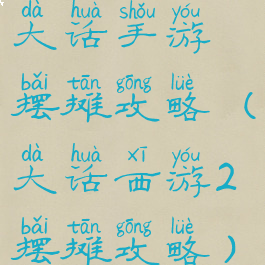 dà huà shǒu yóu
大话手游
bǎi tān gōng lüè
摆摊攻略（
dà huà xī yóu
大话西游2
bǎi tān gōng lüè
摆摊攻略）